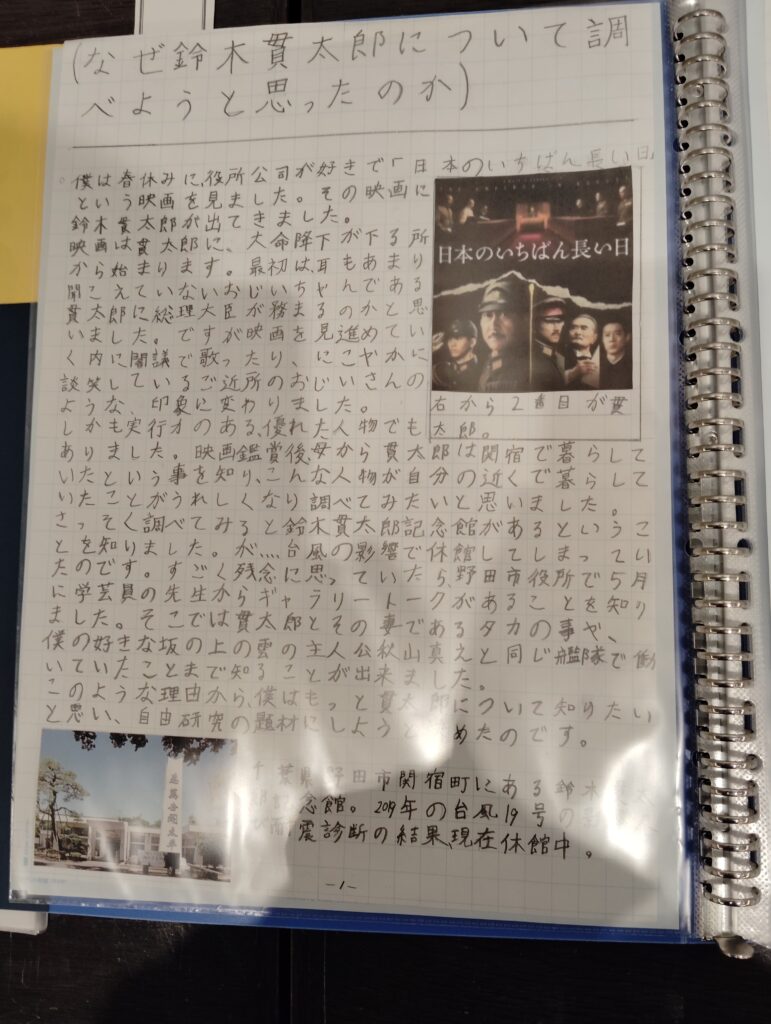 (なぜ鈴木貫太郎について調
べようと思ったのか)
僕は春休みに、役所公司が好きで「日本のいちばん長い日
という映画を見ました。その映画に
鈴木貫太郎が出てきました。
映画は貫太郎に、大命降下が下る所
から始まります。最初は、耳もあまり
聞こえていないおじいちゃんである
貫太郎に総理大臣が務まるのかと思
いました。ですが映画を見進めてい
く内に閣議で歌ったり、にこやかに
談笑しているご近所のおじいさんの
ような、印象に変わりました。
日本のいちばん長い日
右から2番目が貫
太郎。
しかも実行力のある、優れた人物でも
ありました。映画鑑賞後、母から貫太郎は関宿で暮らして
いたという事を知り、こんな人物が自分の近くで暮らして
いたことがうれしくなり調べてみたいと思いました。
さっそく調べてみると鈴木貫太郎記念館があるというこ
とを知りました。が....台風の影響で休館してしまってい
たのです。すごく残念に思っていたら、野田市役所で5月
に学芸員の先生からギャラリートークがあることを知り
ました。そこでは貫太郎とその妻であるタカの事や、
僕の好きな坂の上の雲の主人公秋山真之と同じ艦隊で働
いていたことまで知ることが出来ました。
このような理由から、僕はもっと貫太郎について知りたい
と思い、自由研究の題材にしようと決めたのです。
千葉県野田市関宿町にある鈴木貫太
郎記念館。2019年の台風19号の
震診断の結果、現在休館中。
-1-